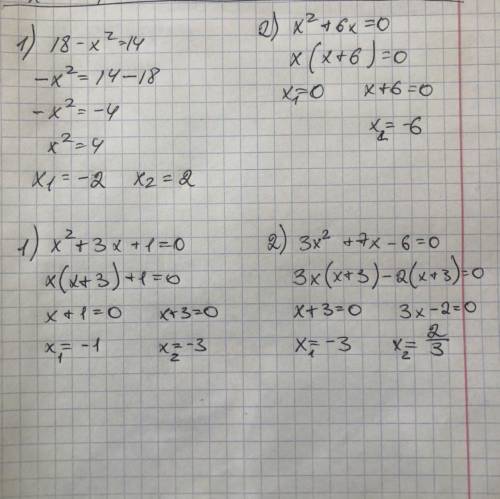 1) 18 - x² = 14
-x² = 14 - 18
-x² = -4
x² = 4
x₁ = -2 x₂ = 2
2) x² + 6x = 0
x(x+6) = 0
x₁ = 0 x+6 = 0
x₂ = -6
1) x² + 3x + 1 = 0
x(x+3) + 1 = 0
x+1 = 0 x+3 = 0
x₁ = -1 x₂ = -3
2) 3x² + 7x - 6 = 0
3x(x+3) - 2(x+3) = 0
x+3 = 0 3x - 2 = 0
x₁ = -3 x₂ = 2/3